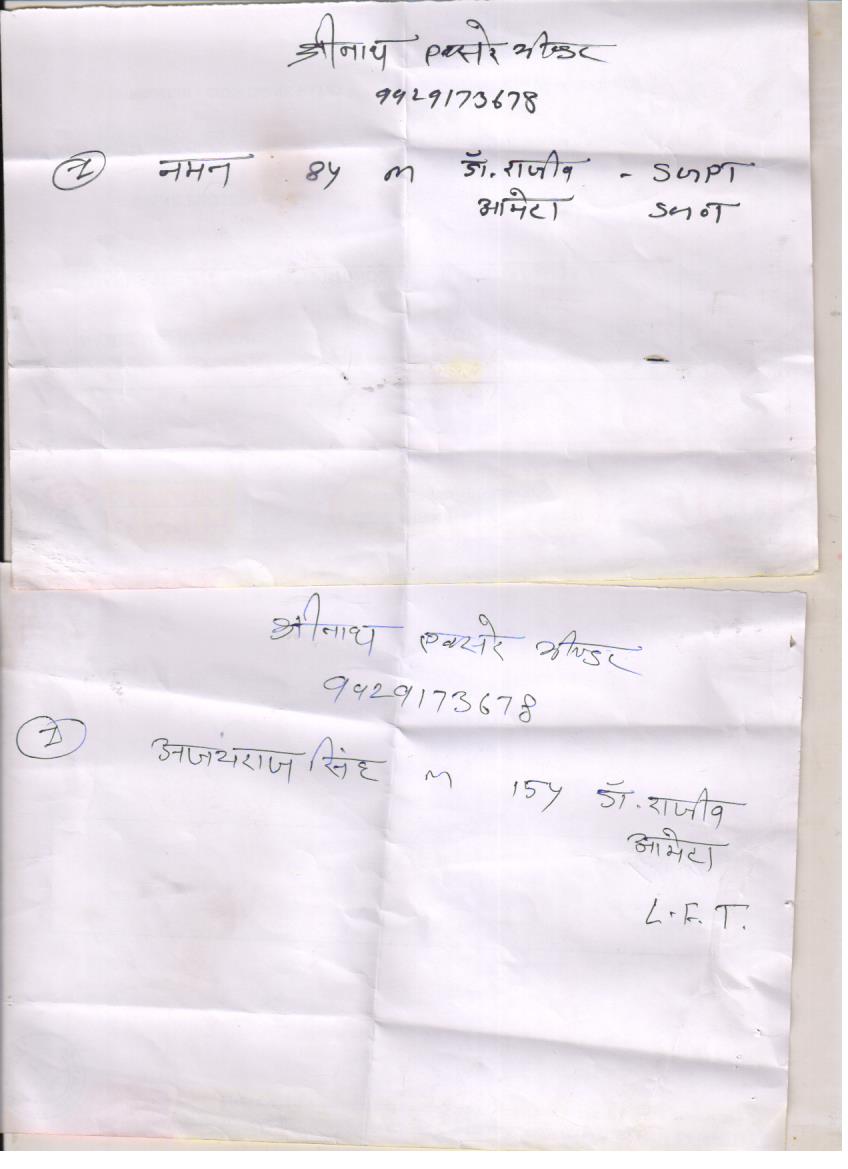 श्रीनाथ एक्सरे भीण्डर
9929173678
① नमन 8y m डॉ. राजीव - SGPT
आमेटा SGOT
श्रीनाथ एक्सरे भीण्डर
9929173678
① अजयराज सिंह m 15y डॉ. राजीव
आमेटा
L.F.T.